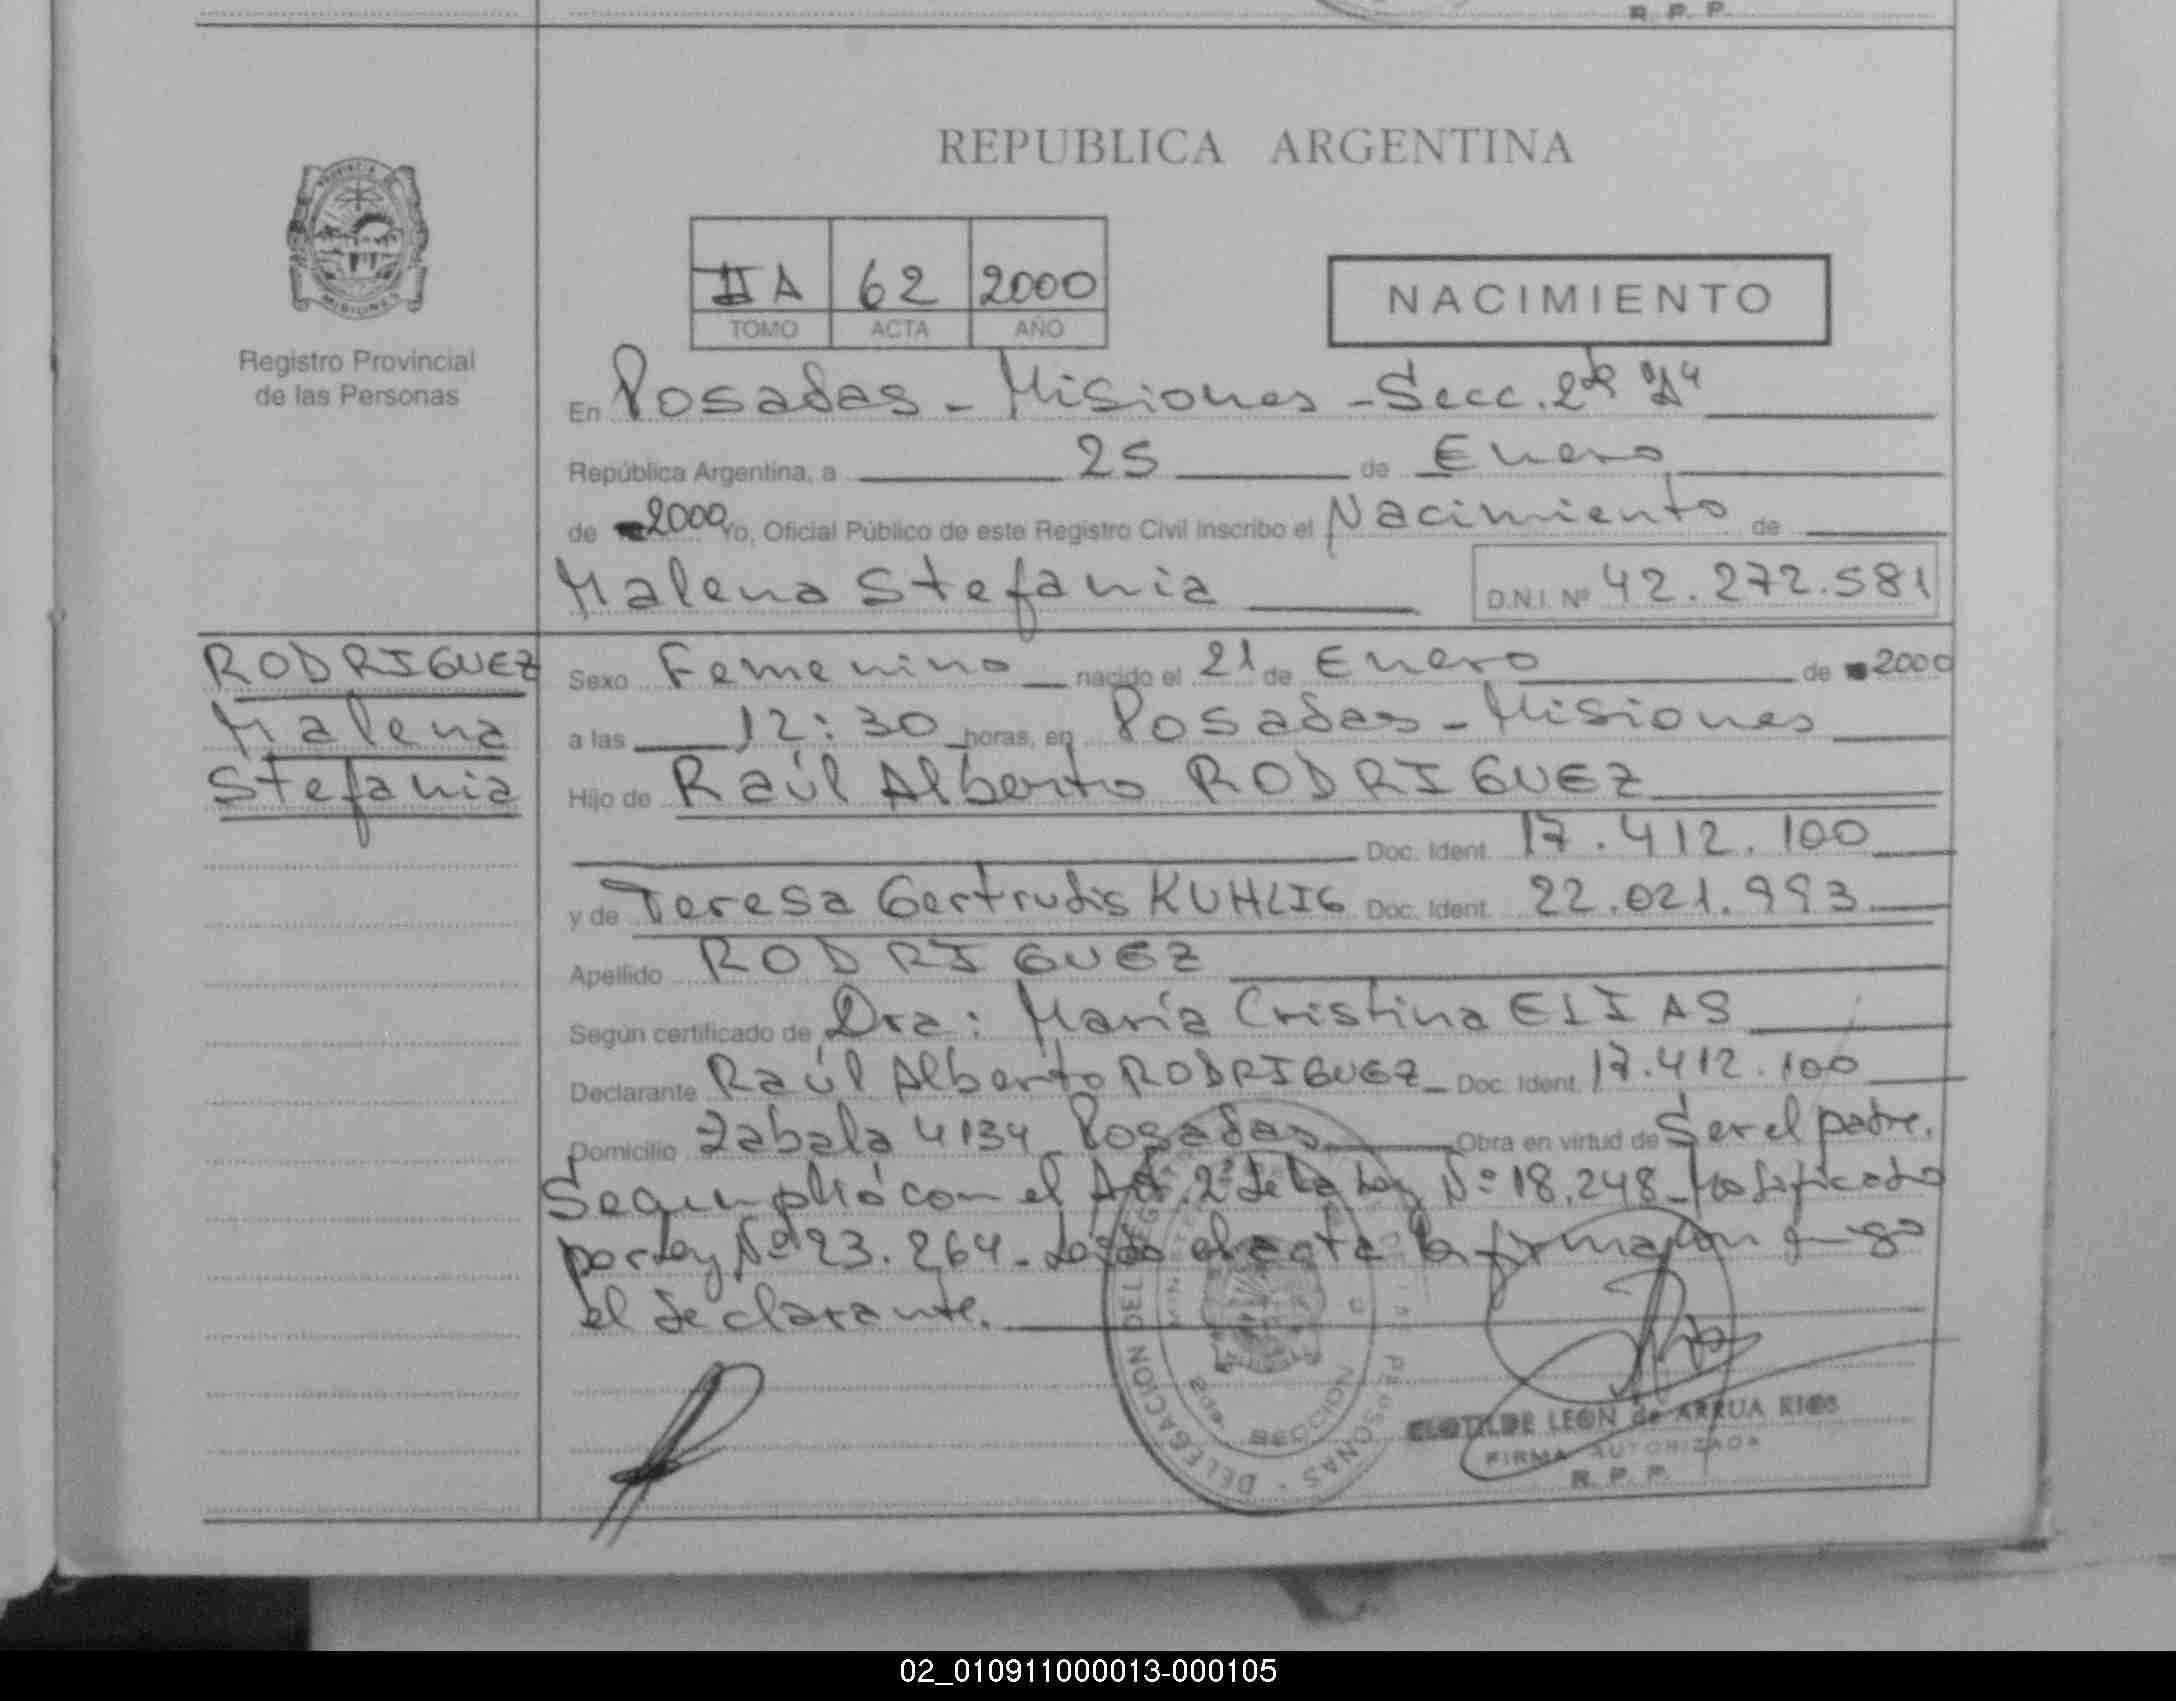 R. P. P.
REPUBLICA ARGENTINA
PROVINCIA DE
MISIONES
Registro Provincial
de las Personas
IIA 62 2000
TOMO ACTA AÑO
NACIMIENTO
En Posadas - Misiones - Secc. 2da "A"
República Argentina, a 25 de Enero
de 2000 Yo, Oficial Público de este Registro Civil inscribo el Nacimiento de
Malena Stefania D.N.I. Nº 42.272.581
RODRIGUEZ
Malena
Stefania
Sexo Femenino nacido el 21 de Enero de 2000
a las 12:30 horas, en Posadas - Misiones
Hijo de Raúl Alberto RODRIGUEZ
Doc. Ident. 17.412.100
y de Teresa Gertrudis KUHLIG Doc. Ident. 22.021.993
Apellido RODRIGUEZ
Según certificado de Dra: María Cristina ELIAS
Declarante Raúl Alberto RODRIGUEZ Doc. Ident. 17.412.100
Domicilio Zabala 4134 Posadas Obra en virtud de Ser el padre.
Se cumplió con el Art. 2º de la Ley Nº 18.248 - Modificado
por Ley Nº 23.264 - Leída el acta la firman
el declarante.
DELEGACION DEL PERSONAS
SECCION
CLOTILDE LEON de ARRUA RIOS
FIRMA AUTORIZADA
R. P. P.
02_010911000013-000105